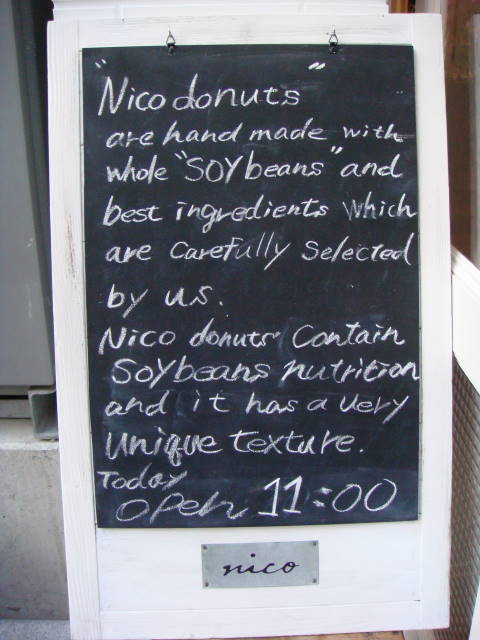 "Nico donuts"
are hand made with
whole "SOYbeans" and
best ingredients which
are carefully selected
by us.
Nico donuts contain
Soybeans nutrition
and it has a very
unique texture.
Today
open 11:00
nico